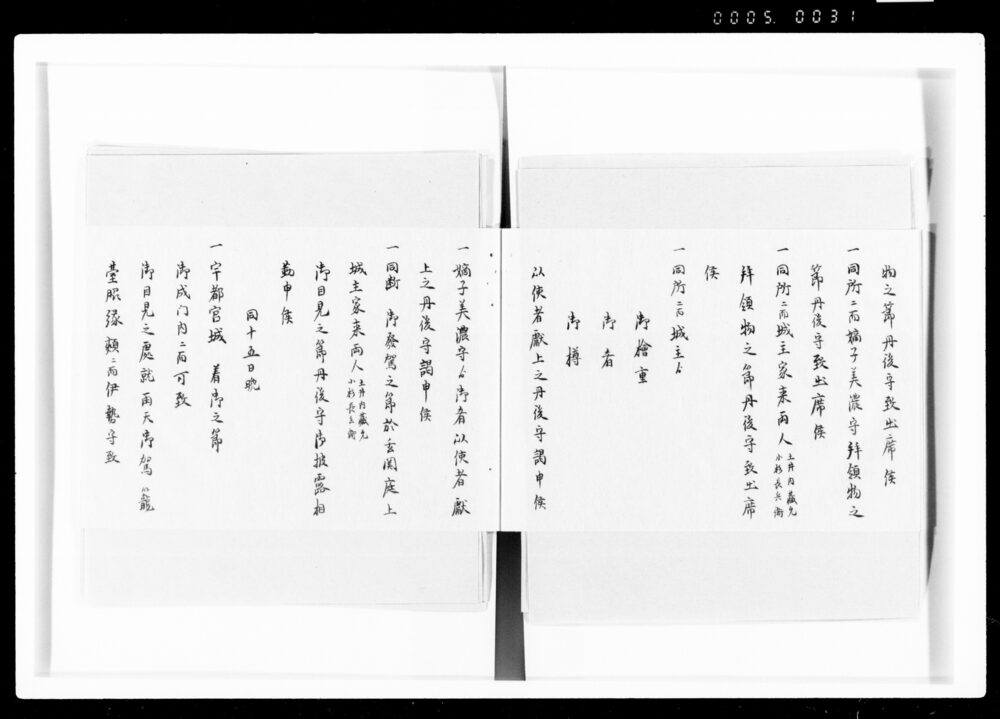 0005. 0031
物之節丹後守致出席候
一同所ニ而嫡子美濃守拝領物之
節丹後守致出席候
一同所ニ而城主家来両人 土井内蔵允 小杉長兵衛
拝領物之節丹後守致出席
候
一同所ニ而城主ゟ
御檜重
御肴
御樽
以使者献上之丹後守謁申候
一嫡子美濃守ゟ御肴以使者献
上之丹後守謁申候
一同断 御発駕之節於玄関庭上
城主家来両人 土井内蔵允 小杉長兵衛
御目見之節丹後守御披露相
勤申候
同十五日晩
一宇都宮城 着御之節
御成門内ニ而可致
御目見之処就雨天御駕籠
台眼縁頬ニ而伊勢守致